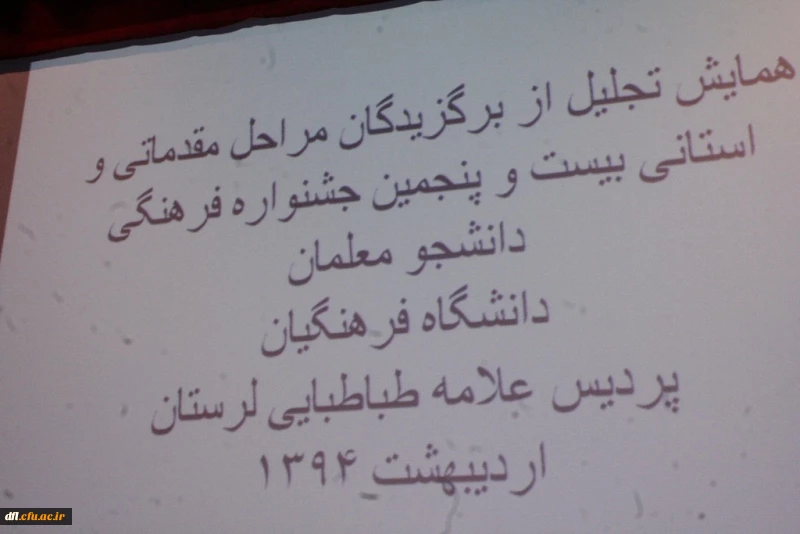 همایش تجلیل از برگزیدگان مراحل مقدماتی و
استانی بیست و پنجمین جشنواره فرهنگی
دانشجو معلمان
دانشگاه فرهنگیان
پردیس علامه طباطبایی لرستان
اردیبهشت ۱۳۹۴
dfl.cfu.ac.ir